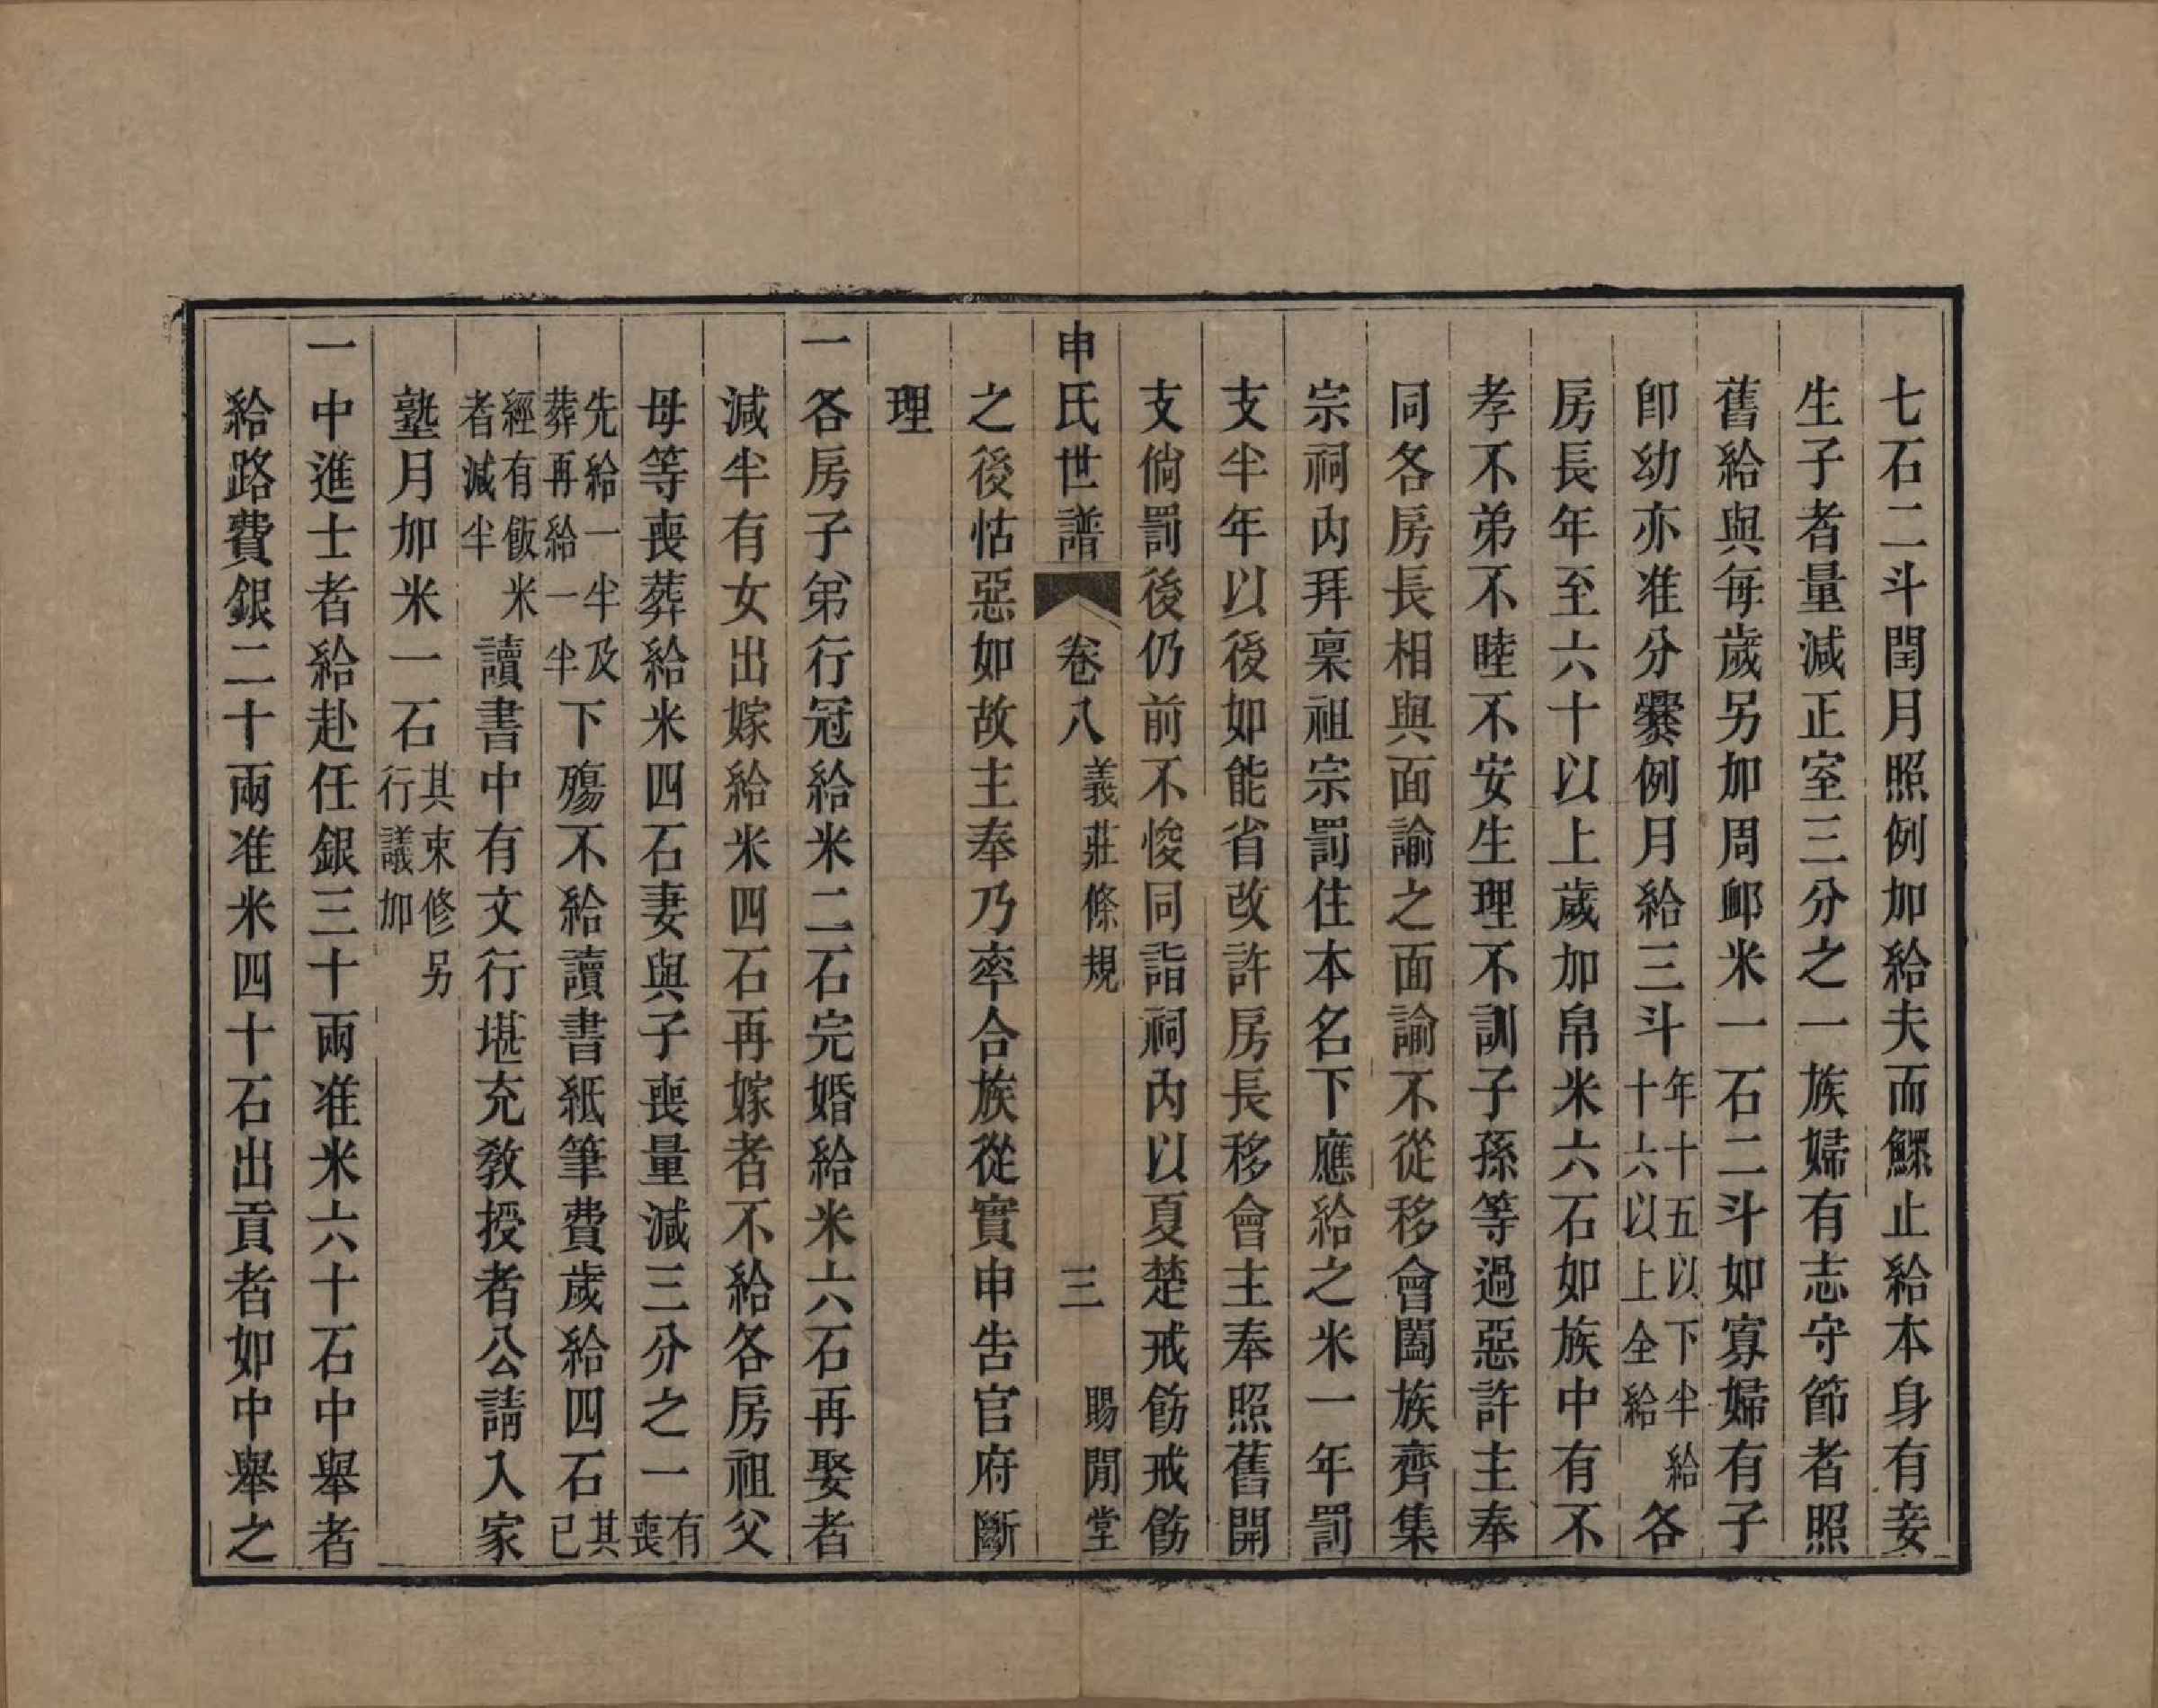 七石二斗閏月照例加給夫而鰥止給本身有妾
生子者量減正室三分之一族婦有志守節者照
舊給與每歲另加周䘏米一石二斗如寡婦有子
卽幼亦准分爨例月給三斗年十五以下半給十六以上全給各
房長年至六十以上歲加帛米六石如族中有不
孝不弟不睦不安生理不訓子孫等過惡許主奉
同各房長相與面諭之面諭不從移會闔族齊集
宗祠內拜稟祖宗罰住本名下應給之米一年罰
支半年以後如能省改許房長移會主奉照舊開
支倘罰後仍前不悛同詣祠內以夏楚戒飭戒飭
申氏世譜 卷八 義莊條規 三 賜閒堂
之後怙惡如故主奉乃率合族從實申吿官府斷
理
一各房子弟行冠給米二石完婚給米六石再娶者
減半有女出嫁給米四石再嫁者不給各房祖父
母等喪葬給米四石妻與子喪量減三分之一有喪
先給一半及葬再給一半下殤不給讀書紙筆費歲給四石其已
經有飯米者減半讀書中有文行堪充敎授者公請入家
塾月加米一石其束修另行議加
一中進士者給赴任銀三十兩准米六十石中舉者
給路費銀二十兩准米四十石出貢者如中舉之